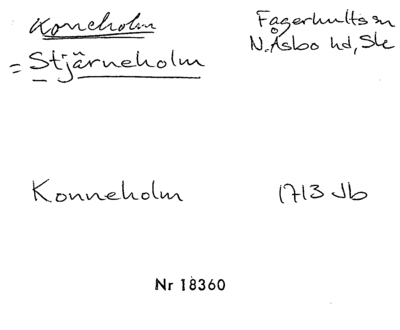 Koneholm
Fagerhults sn
N. Åsbo hd, Sk
= Stjärneholm
Konneholm
1713 Jb
Nr 18360